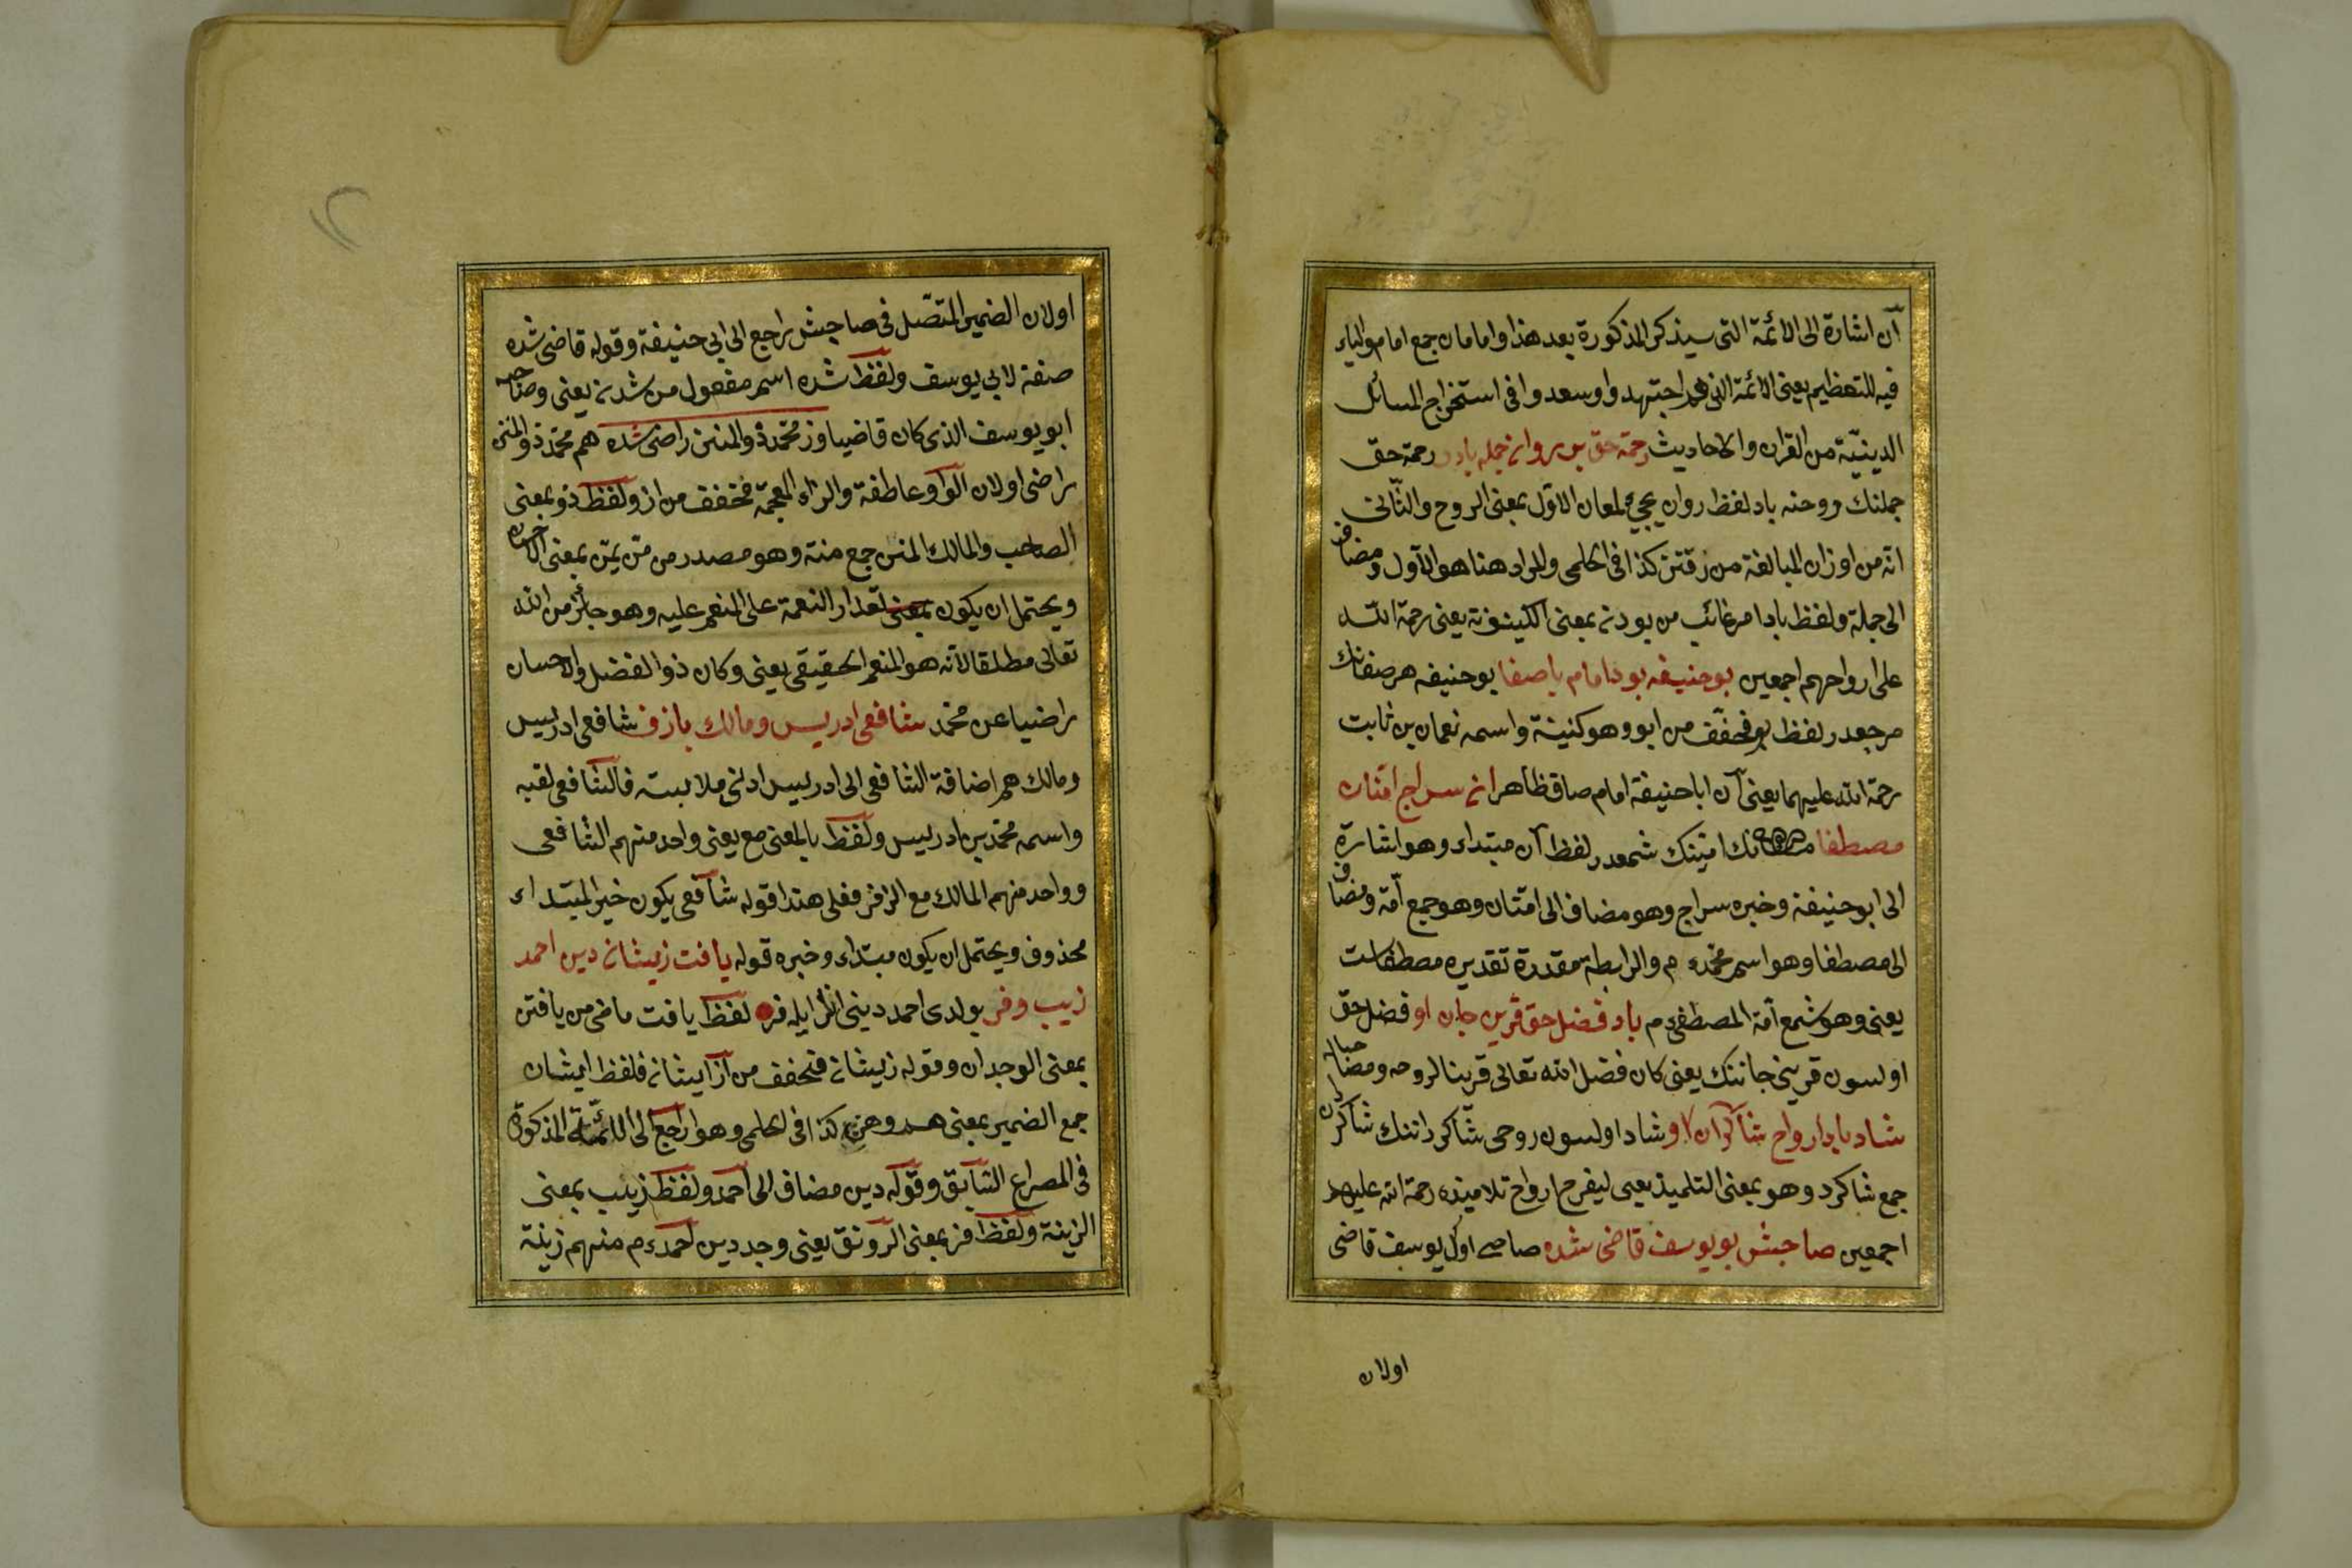 آن اشارة الى الائمة التى سيذكر المذكورة بعد هذا وامامان جمع امام والياء
فيه للتعظيم يعنى الائمة الذى هم اجتهدوا وسعدوا فى استخراج المسائل
الدينيّة من القران والاحاديث رحمة حق بر روان جمله باد رحمة حق
جملنك روحنه باد لفظ روان يجيء لمعان الاوّل بمعنى الروح والثّانى
انّه من اوزان المبالغة من رفتن كذا فى الحلمى والمراد هنا هو الاوّل ومضاف
الى جملة ولفظ باد امر غائب من بودن بمعنى الكينونة يعنى رحمة الله
على ارواحهم اجمعين بوحنيفه بود امام باصفا بوحنيفه هر صفانك
مرجعدر لفظ بو مخفّف من ابو وهو كنية واسمه نعمان بن ثابت
رحمة الله عليهما يعنى آن ابا حنيفة امام صاف ظاهرا ان سراج امّتان
مصطفا امتينك شمعدر لفظ آن مبتداء وهو اشارة
الى ابو حنيفة وخبره سراج وهو مضاف الى امّتان وهو جمع امّة ومضاف
الى مصطفا وهو اسم محمّد عم والرابطة مقدرة تقديره مصطفاست
يعنى وهو شمع امّة المصطفى عم باد فضل حق قرين جان او فضل حق
اولسون قرينى جاننك يعنى كان فضل الله تعالى قرينا لروحه ومضاحبا له
شاد باد ارواح شاكردان او شاد اولسون روحى شاكردانتك شاكردان
جمع شاكرد وهو بمعنى التلميذ يعنى ليفرح ارواح تلاميذه رحمة الله عليهم
اجمعين صاحبش بو يوسف قاضى شده صاحبى اول يوسف قاضى
اولان
اولان الضمير المتّصل فى صاحبش راجع الى ابى حنيفة وقوله قاضى شده
صفة لابى يوسف ولفظ شده اسم مفعول من شدن يعنى وصاحبه
ابو يوسف الذى كان قاضيا وز محمّد ذو المنن راضى شده هم محمّد ذو المنن
راضى اولان الواو عاطفة والزاء المعجمة مخفف من از ولفظ ذو بمعنى
الصاحب والمالك المنن جمع منة وهو مصدر من منّ يمنّ بمعنى الاحسان
ويحتمل ان يكون بمعنى تعداد النعمة على المنعم عليه وهو جائز من الله
تعالى مطلقا لانّه هو المنعم الحقيقى يعنى وكان ذو الفضل والاحسان
راضيا عن محمّد شافعى ادريس ومالك بازفر شافعى ادريس
ومالك هم اضافة الشافعى الى ادريس ادنى ملابسة فالشافعى لقبه
واسمه محمّد بن ادريس ولفظ با بالمعنى مع يعنى واحد منهم الشافعى
وواحد منهم المالك مع الزفر فعلى هذا قوله شافعى يكون خبر المبتداء
محذوف ويحتمل ان يكون مبتداء وخبره قوله يافت زيشان دين احمد
زيب وفر بولدى احمد دينى انلر ايله فر لفظ يافت ماضى من يافتن
بمعنى الوجدان وقوله زيشان فمخفف من از ايشان فلفظ ايشان
جمع الضمير بمعنى هم وهن كذا فى الحلمى وهو راجع الى الائمّة المذكورة
فى المصراع السّابق وقوله دين مضاف الى احمد ولفظ زيب بمعنى
الزينة ولفظ فر بمعنى الرونق يعنى وجد دين احمد عم منهم زينة